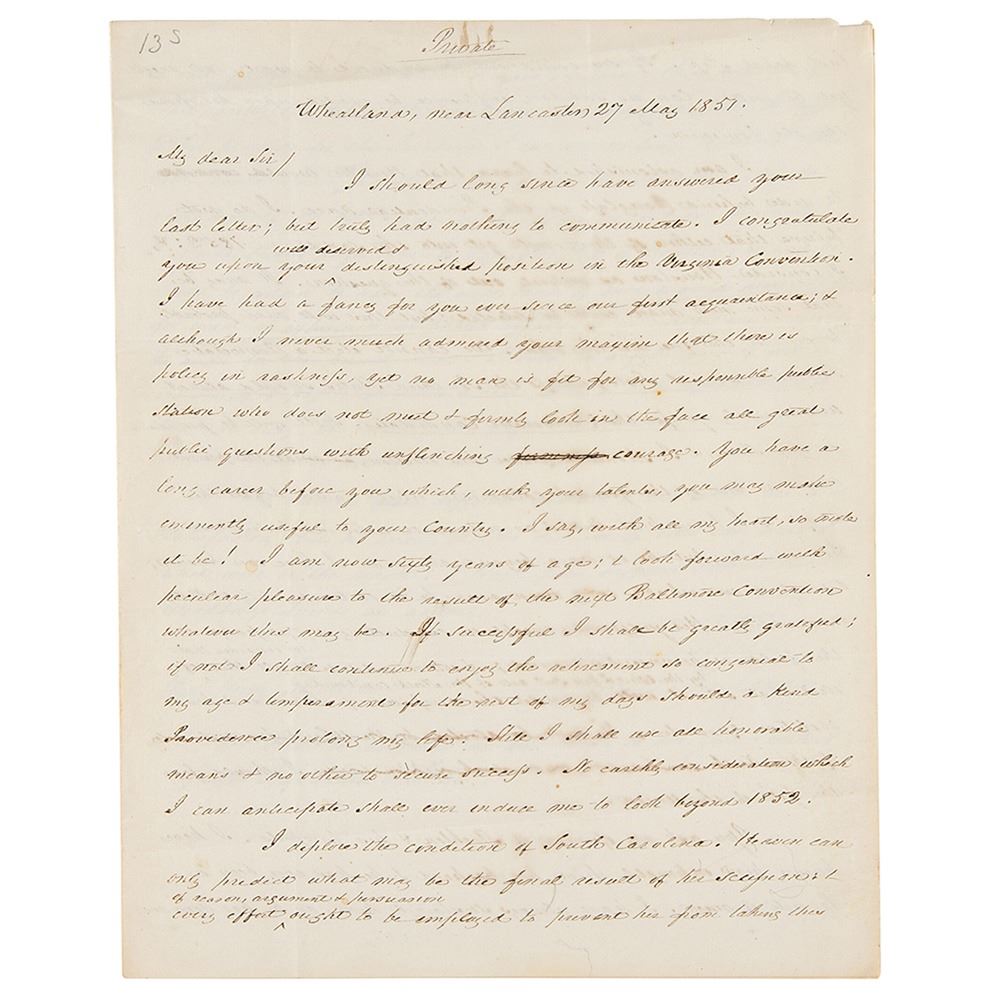 13 S
Private
Wheatland, near Lancaster 27 May 1851.
My dear Sir/
I should long since have answered your
last letter; but truly had nothing to communicate. I congratulate
well deserved &
you upon your distinguished position in the Virginia Convention.
I have had a fancy for you ever since our first acquaintance; &
although I never much admired your maxim that there is
policy in rashness, yet no man is fit for any responsible public
station who does not meet & firmly look in the face all great
public questions with unflinching courage. You have a
long career before you which, with your talents, you may make
eminently useful to your Country. I say, with all my heart, so mote
it be! I am now sixty years of age; & look forward with
peculiar pleasure to the result of the next Baltimore Convention
whatever this may be. If successful I shall be greatly gratified;
if not I shall continue to enjoy the retirement so congenial to
my age & temperament for the rest of my days should a kind
Providence prolong my life. Still I shall use all honorable
means & no other to secure success. No earthly consideration which
I can anticipate shall ever induce me to look beyond 1852.
I deplore the condition of South Carolina. Heaven can
only predict what may be the final result of her secession; &
of reason, argument & persuasion
every effort ought to be employed to prevent her from taking this